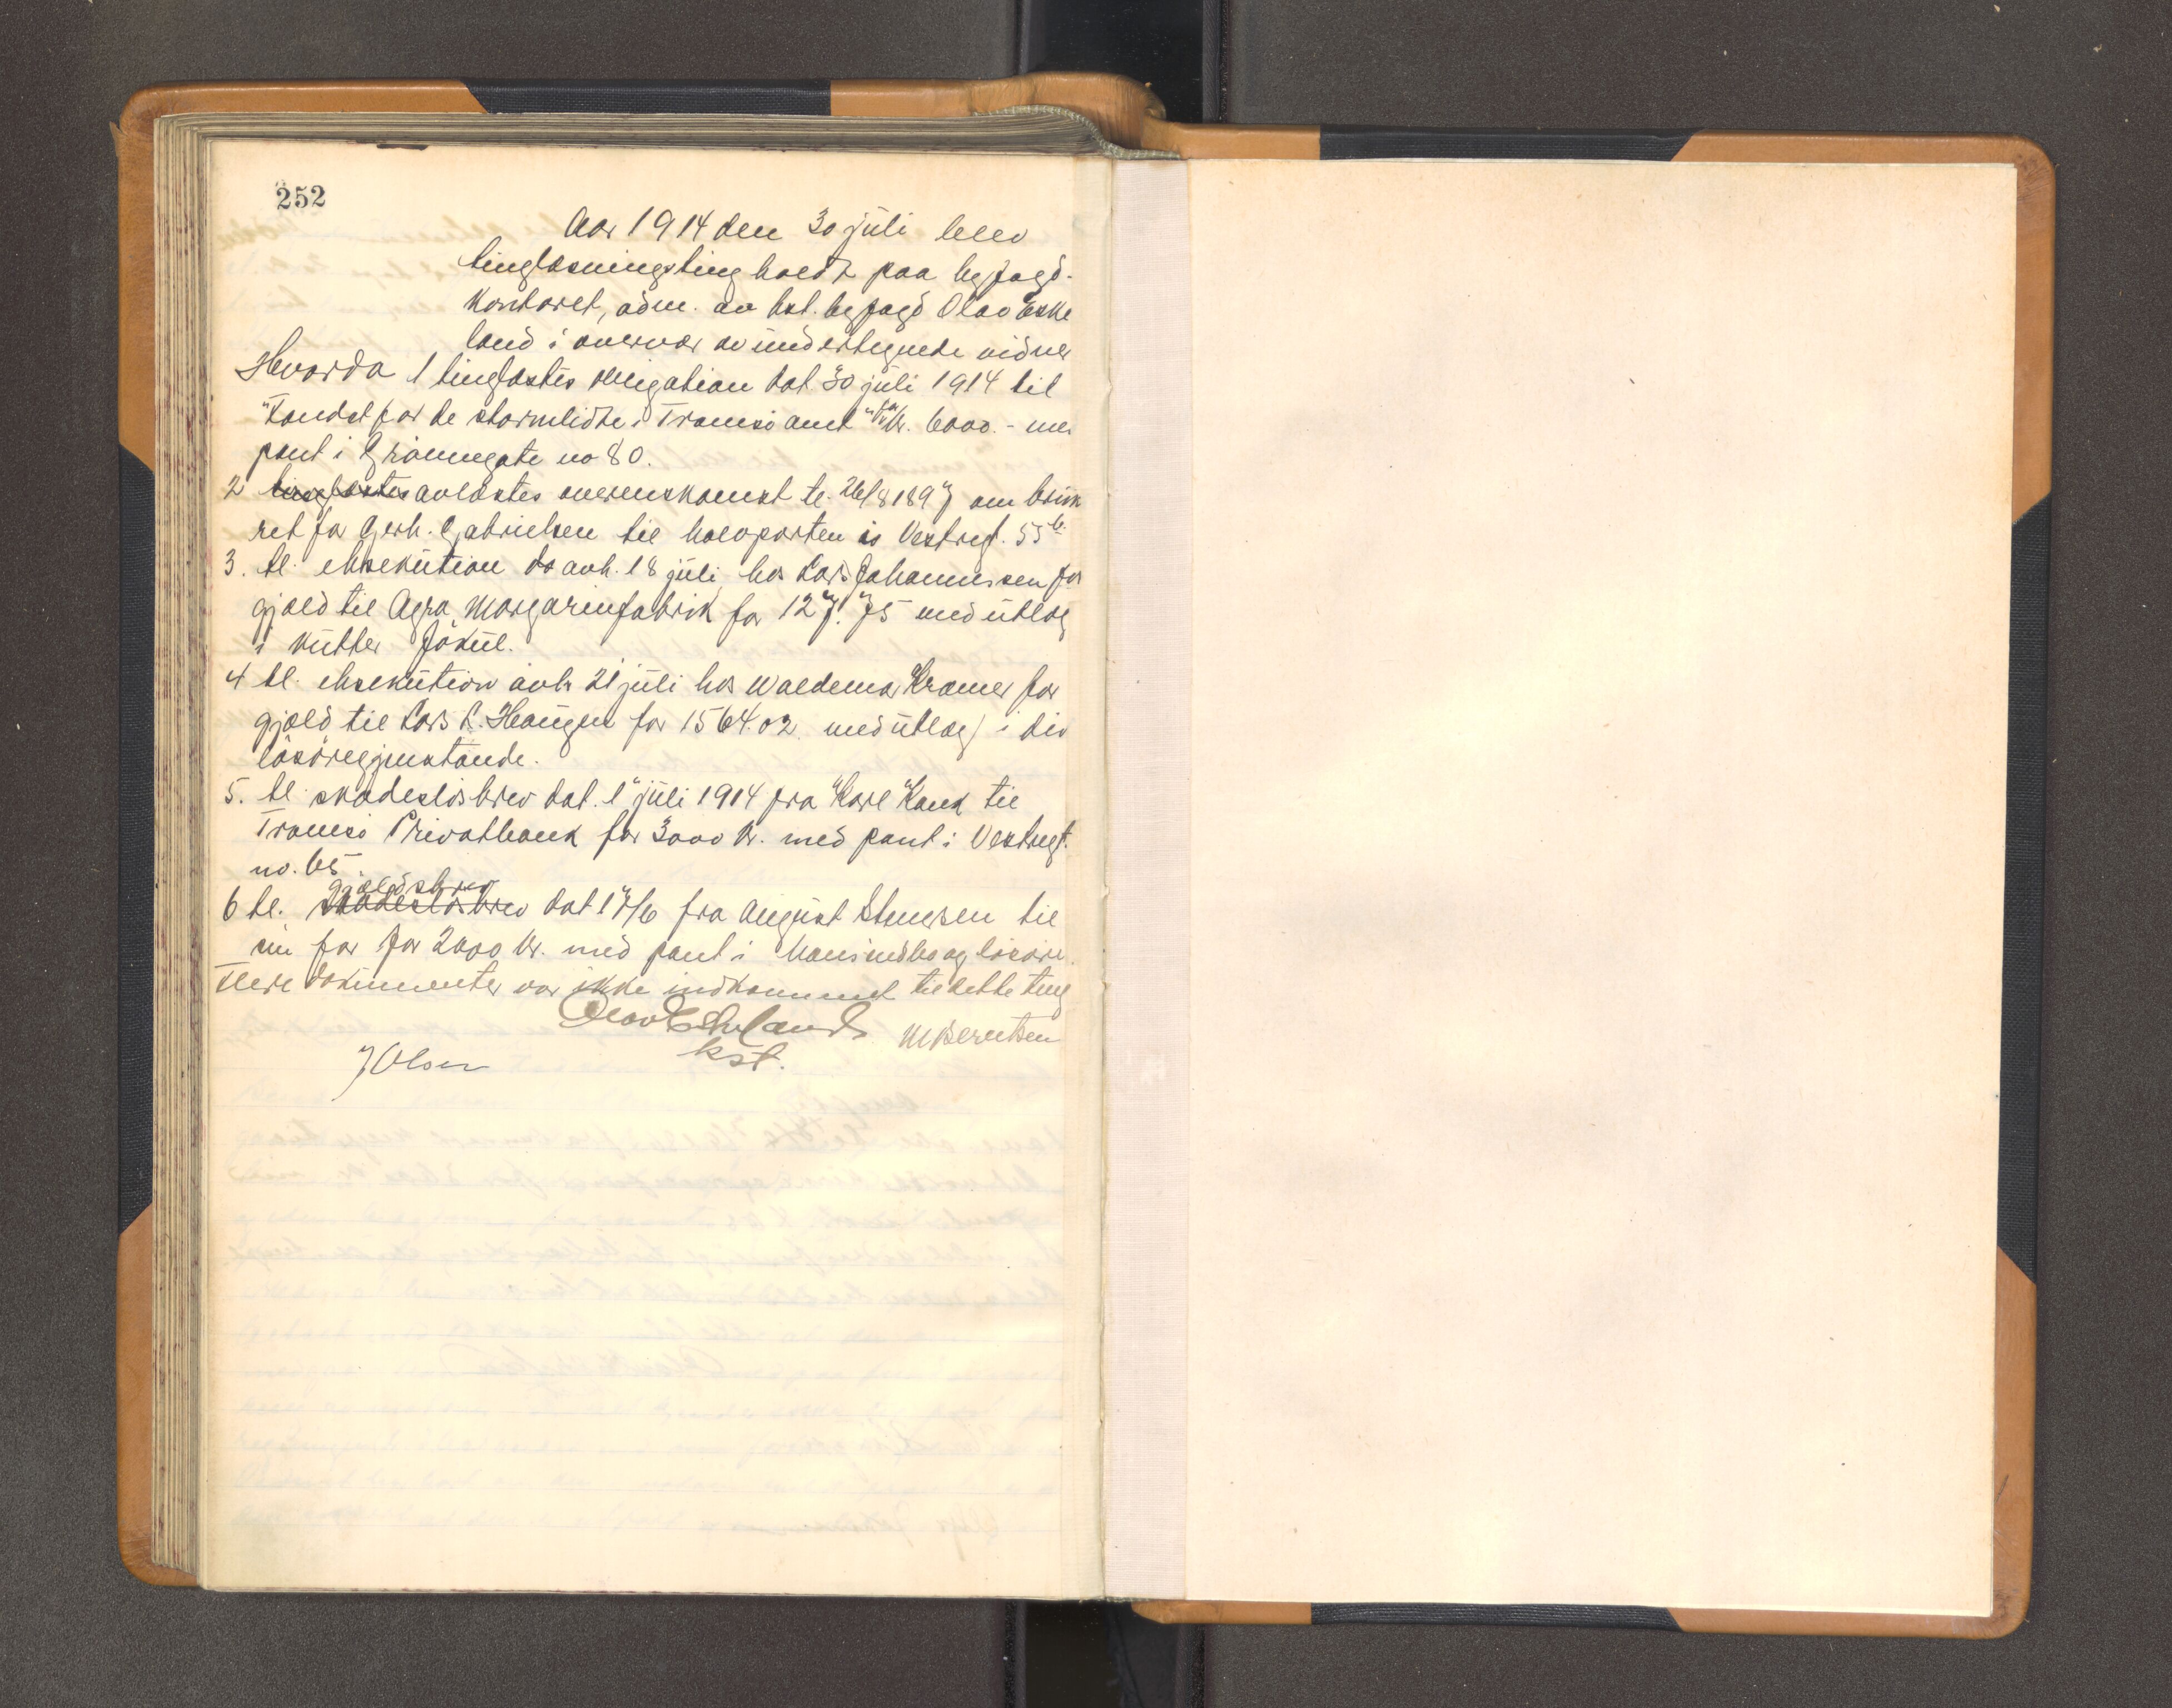 252
Aar 1914 den 30 juli blev
tinglæsningsting holdt paa byfogd-
kontoret, adm. av kst. byfogd Olav Eske
land i overvær av undertegnede vidner
Hvorda 1 tinglæstes obligation dat 30 juli 1914 til
"Fondet for de stormlidte i Tromsø amt" for kr. 6000.- me
pant i Grönnegate no 80.
2 tinglæstes avlæstes overenskomst tl. 26/8 1897 om bruk
ret for Gerh. Gabrielsen til halvparten i Vestregt. 55 b.
3. tl. eksekution avh. 18 juli hos Lars Johannessen for
gjæld til Agra Margarinfabrik for 127.75 med utlæg
i kutter Jökul.
4 tl. eksekution avh 21 juli hos Waldemar Kramer for
gjæld til Lars L. Haugen for 1564.02. med utlæg i div
lösöregjenstande.
5. tl. skadeslösbrev dat. 1 juli 1914 fra Karl Kank til
Tromsö Privatbank for 3000 kr. med pant i Vestregt.
no. 65.
gjældsbrev
6 tl. skadeslösbrev dat 17/6 fra August Stensen til
sin far for 2000 kr. med pant i hans indbo og lösöre.
Flere dokumenter var ikke indkommet til dette ting
Olav Eskeland M Berntsen
J Olsen kst.